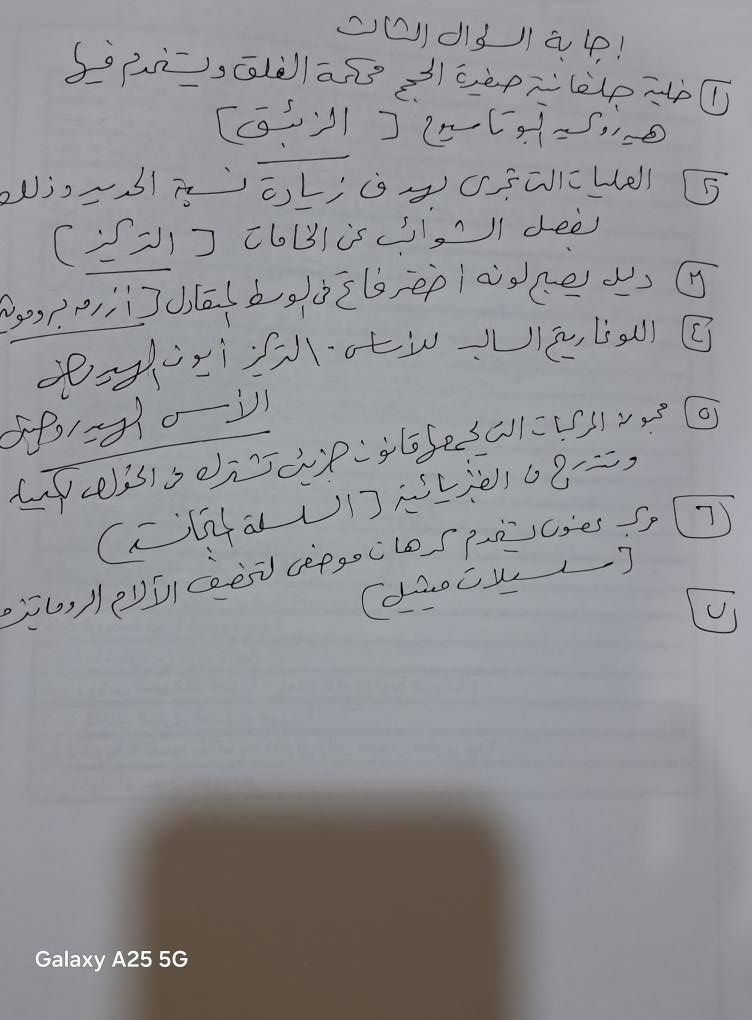 إجابة السؤال الثالث
١ خلية جلفانية صغيرة الحجم محكمة الغلق ويستخدم فيها
هيدروكسيد البوتاسيوم [ الزئبق ]
٢ العمليات التى تجرى بهدف زيادة نسبة الحديد وذلك
بفصل الشوائب عن الخامات [ التركيز ]
٣ دليل يصبح لونه أخضر فاتح فى الوسط المتعادل [ أزرق بروموثيمول
٤ اللوغاريتم السالب للأساس ١٠ لتركيز أيون الهيدروجين
الأس الهيدروجينى
٥ مجموعة المركبات التى يجمعها قانون جزيئى تشترك فى الخواص الكيميائية
وتتدرج فى الفيزيائية [ السلسلة المتجانسة ]
٦ مركب عضوى يستخدم كدهان موضعى لتخفيف الآلام الروماتيزمية
[ سلسيلات ميثيل ]
٧
Galaxy A25 5G